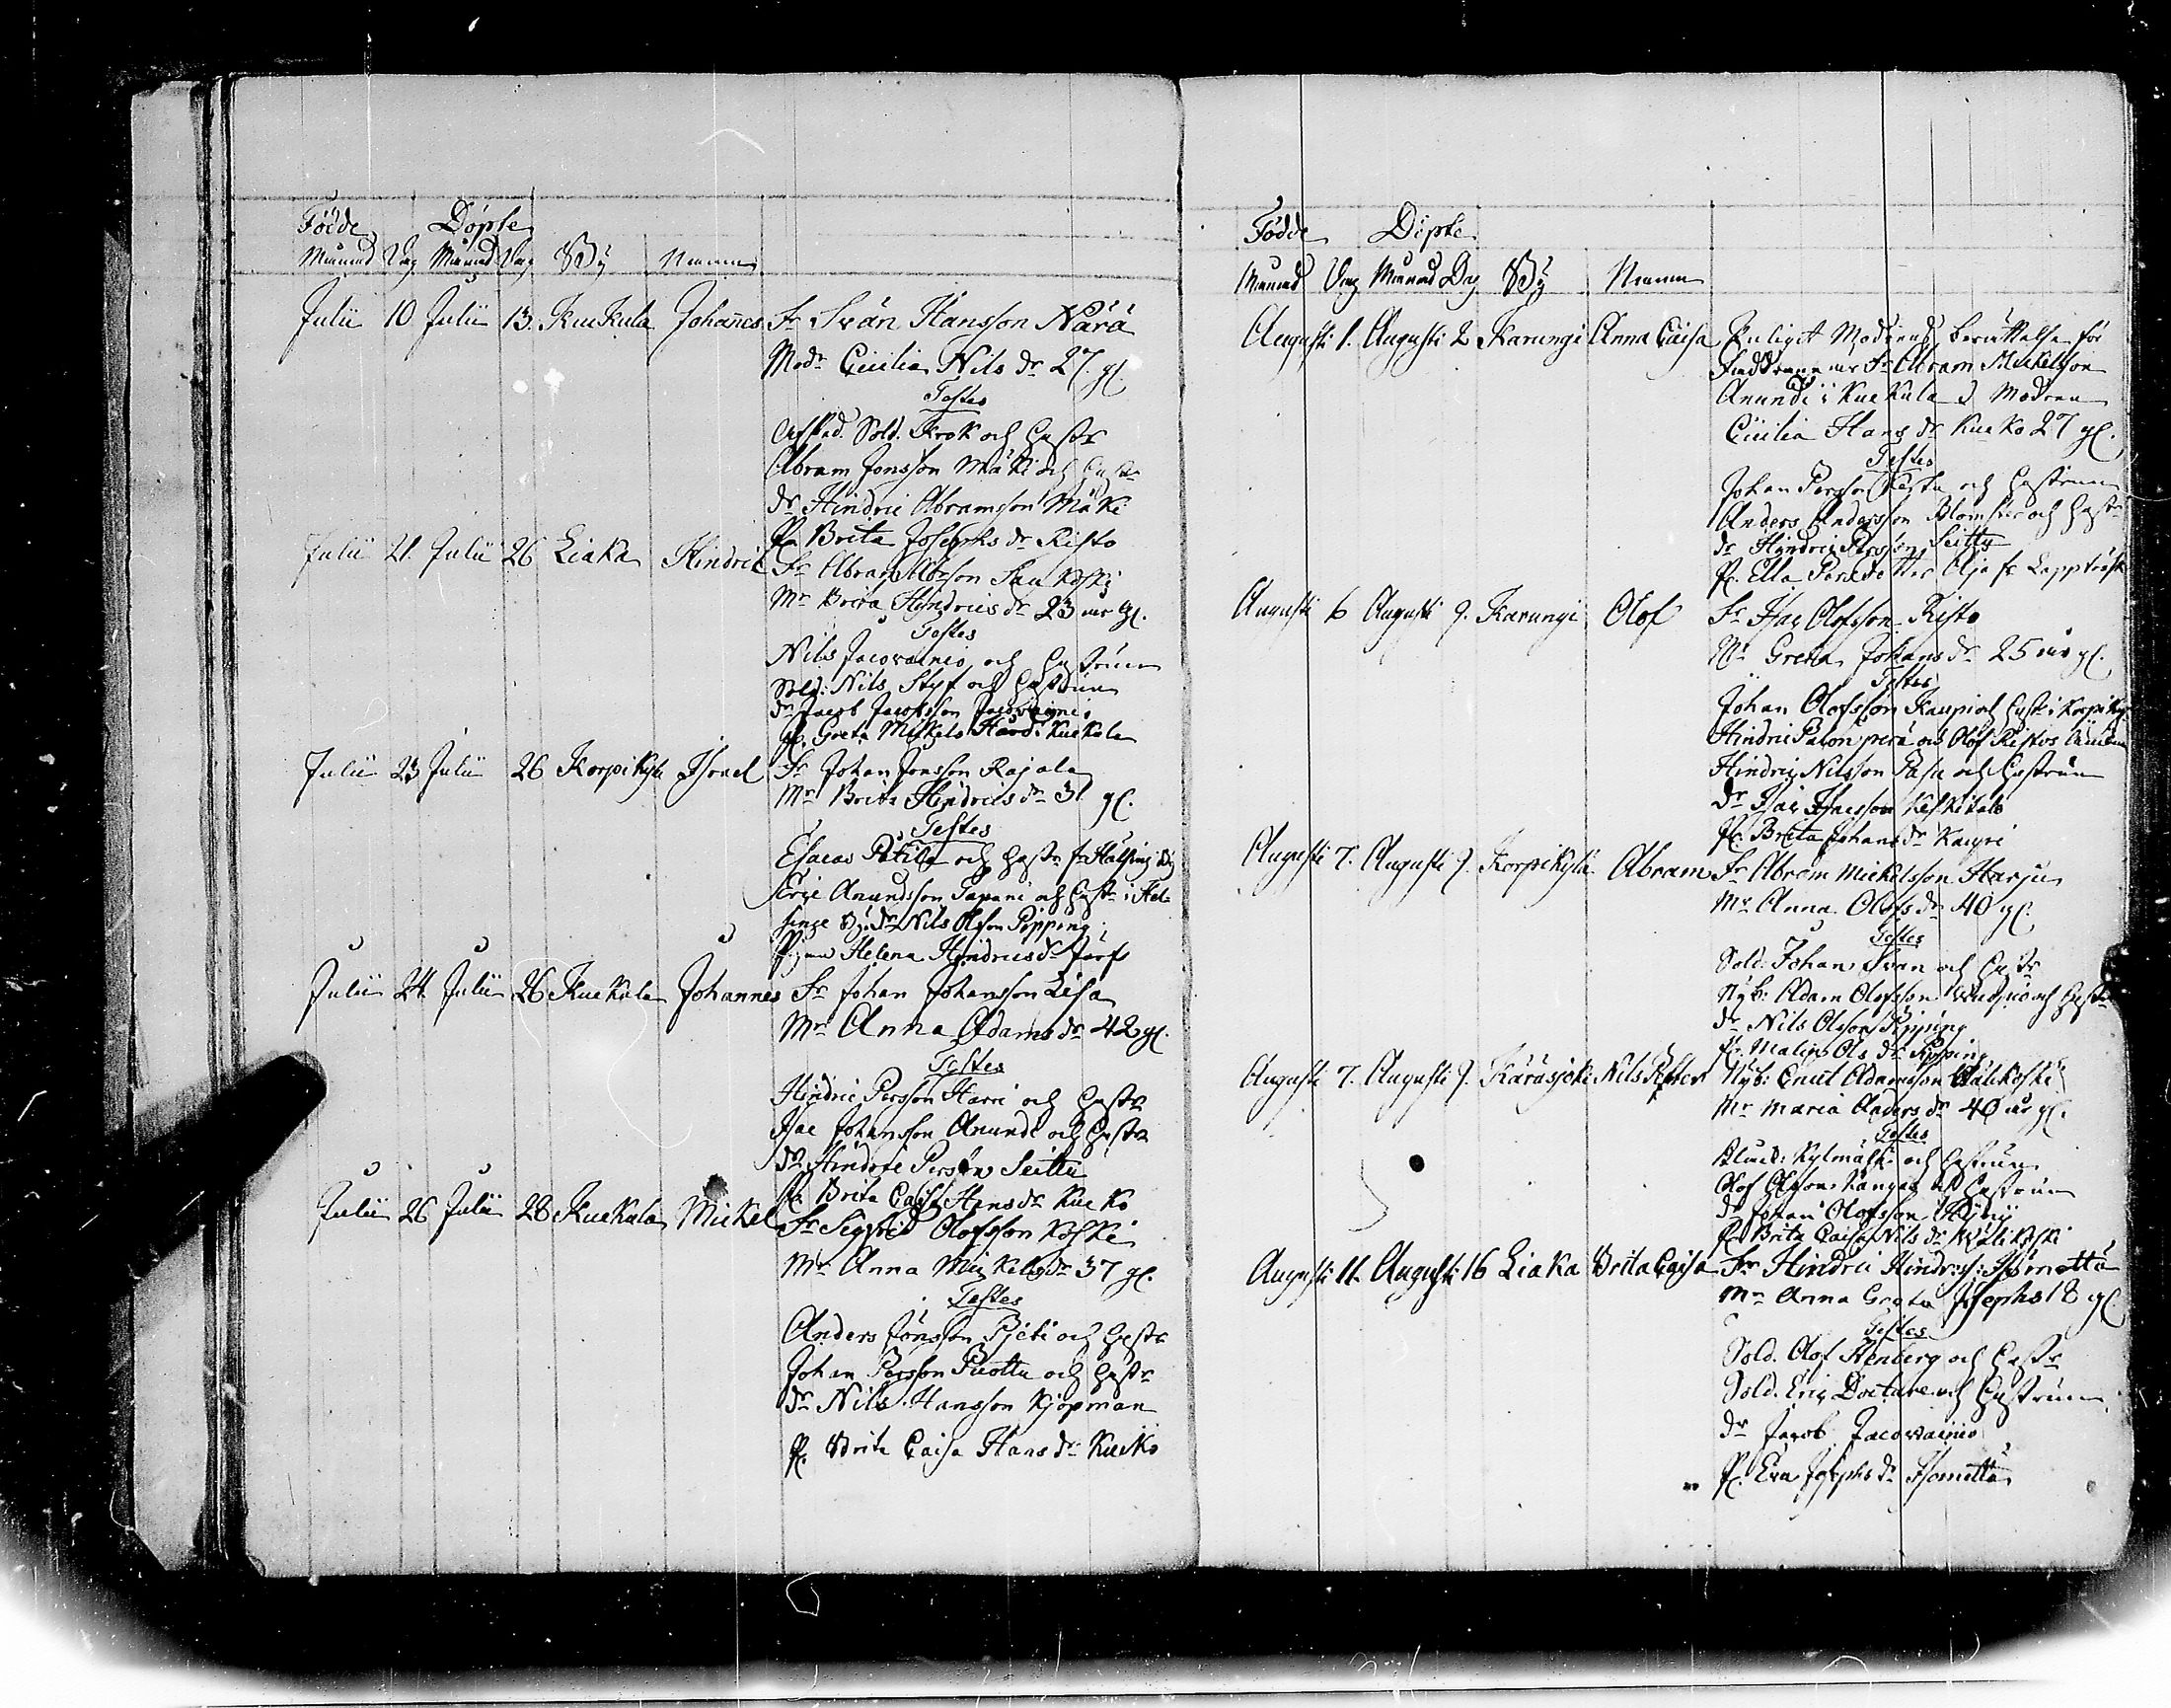 Födde Döpte
Månad Dag Månad Dag By Namn
Julii 10 Julii 13. Kuckula Johannes Fr Svän Hansson Närä
Modr Cicilia Nils dr 27. gl.
Testes
Afsked. Sold. Krok och Hustr
Abram Jonsson Mäki och Hustr
dr Hindric Abramsson Mäki
P. Brita Josephs dr Risto
Julii 21. Julii 26 Liaka Hindric Fr Abram Abrson Laukoski
Mr Brita Hindrics dr 23 år gl.
Testes
Nils Jacovainio och Hustrun
Sold: Nils Styf och Hustrun
dr Jacob Jacobsson Jacovainio
P. Greta Mickels Kuckula
Julii 23 Julii 26 Korpikylä Israel Fr Johan Jonsson Rajala
Mr Brita Hindrics dr 31 gl.
Testes
Esaias Pätilä och Hustr fr Hälsing By
Eric Anundsson Tapani och Hustr i Hel-
singe By. dr Nils Olsson Pipping
Pigan Helena Hindrics dr
Julii 24 Julii 26 Kuckula Johannes Fr Johan Johansson Lisa
Mr Anna Adams dr 42 gl.
Testes
Hindric Persson Harri och Hustr
Isac Johansson Anundi och Hustr
dr Hindric Persson Seittu
P. Brita Caisa Hans dr Kucko
Julii 26 Julii 28 Kuckula Mickel Fr Sigfrid Olofsson Koski
Mr Anna Mickels dr 37 gl.
Testes
Anders Jönsson Pjeti och Hustr
Johan Persson Puottu och Hustr
dr Nils Hansson Kjöpman
P. Brita Caisa Hans dr Kucko
Födde Döpte
Månad Dag Månad Dag By Namn
Augusti 1. Augusti 2 Karungi Anna Caisa Enligt Modrens berättelse för
är Fr Abram Mickelsson
Anundi i Kuckula d Modren
Cicilia Hans dr Kucko 27 gl.
Testes
Johan Persson och Hustrun
Anders Andersson och Hustr
dr Hindric Persson Seittu
P. Ella Persdotter Olja fr Lappträsk
Augusti 6 Augusti 9. Karungi Olof Fr Isac Olofsson Risto
Mr Greta Johans dr 25 år gl.
Testes
Johan Olofsson Kaupi och Hustr i Korpikylä
Hindric Palonperä och Olof Ristos
Hindric Nilsson Pasu och Hustrun
Dr Isac Isacsson Keskitalo
P. Brita Johans dr Kaupi
Augusti 7. Augusti 9. Korpikylä Abram Fr Abram Mickelsson Harju
Mr Anna Olofs dr 40 gl.
Testes
Sold: Johan Svan och Hustr
Nyb: Adam Olofsson och Hustr
dr Nils Olsson Pipping
P. Malin Ols dr Pipping
Augusti 7. Augusti 9. Karasjoki Nils Petter Nyb: Cnut Adamsson Wälikoski
Mr Maria Anders dr 40 år gl.
Testes
Kylmäski och Hustrun
Olof Olsson Kangas och Hustrun
dr Johan Olofsson
P. Brita Caisa Nils dr Wälikoski
Augusti 11. Augusti 16 Liaka Brita Caisa Fr Hindric Hindrics: Isometta
Mr Anna Greta Josephs 18 gl.
Testes
Sold. Olof Stenberg och Hustr
Sold. Eric Docture och Hustrun
dr Jacob Jacovainio
P. Eva Josephs dr Isometta